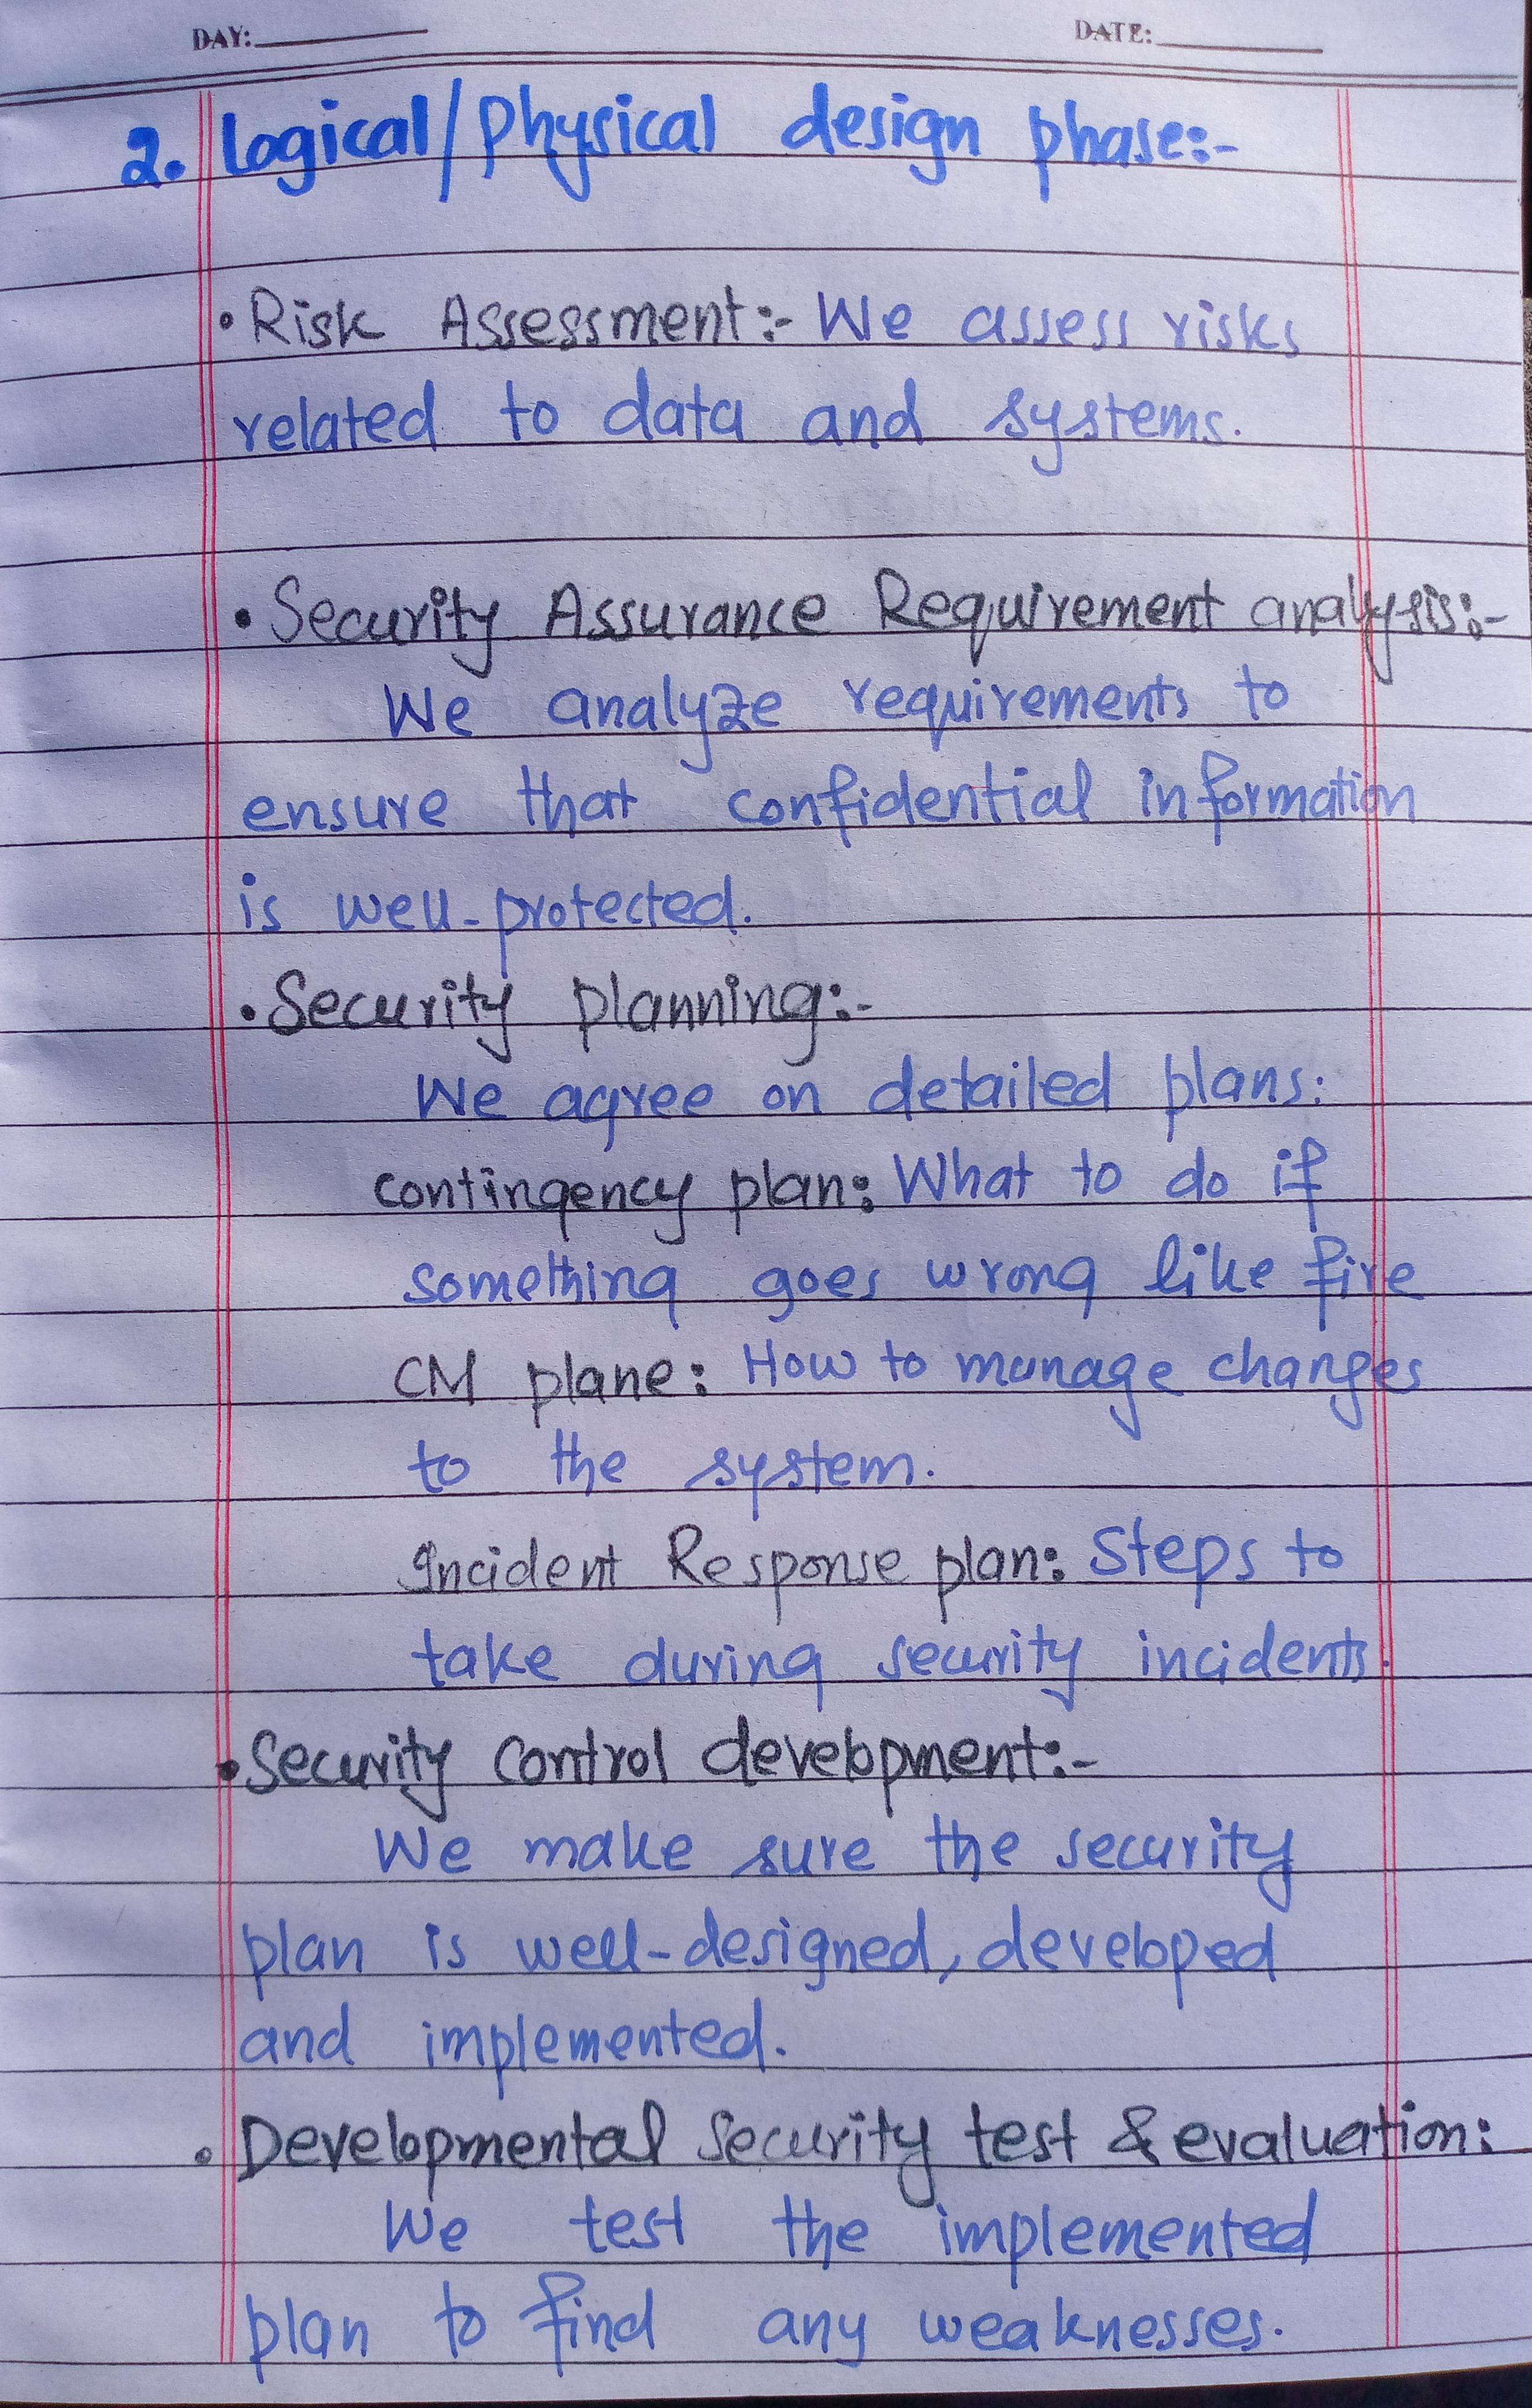 DAY:
DATE:
2. Logical/Physical design phase:-
• Risk Assessment:- We assess risks
related to data and systems.
• Security Assurance Requirement analysis:-
We analyze requirements to
ensure that confidential information
is well-protected.
• Security planning:-
We agree on detailed plans:
contingency plan: What to do if
something goes wrong like fire
CM plane: How to manage changes
to the system.
Incident Response plan: Steps to
take during security incidents.
• Security control development:-
We make sure the security
plan is well-designed, developed
and implemented.
• Developmental security test & evaluation:
We test the implemented
plan to find any weaknesses.